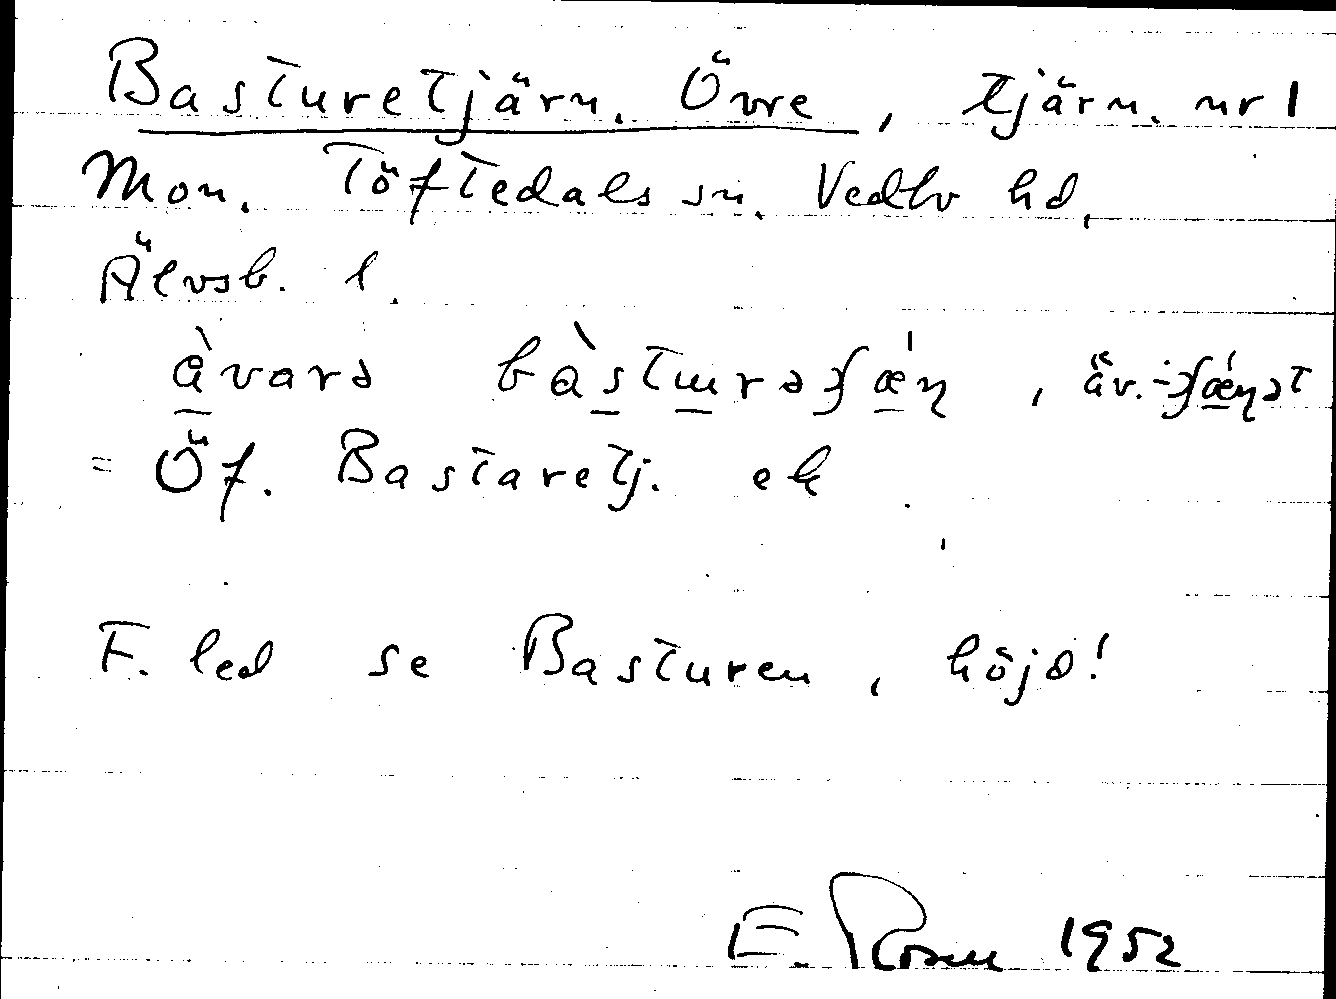 Basturetjärn, Övre, tjärn. nr 1
Mon. Töftedals sn. Vedbo hd,
Älvsb. l.
å̀varə bàsturəʃǽŋ, äv. -ʃǽŋət
= Öf. Bastaretj. ek
F. led se Basturen, höjd!
E. Rosen 1952